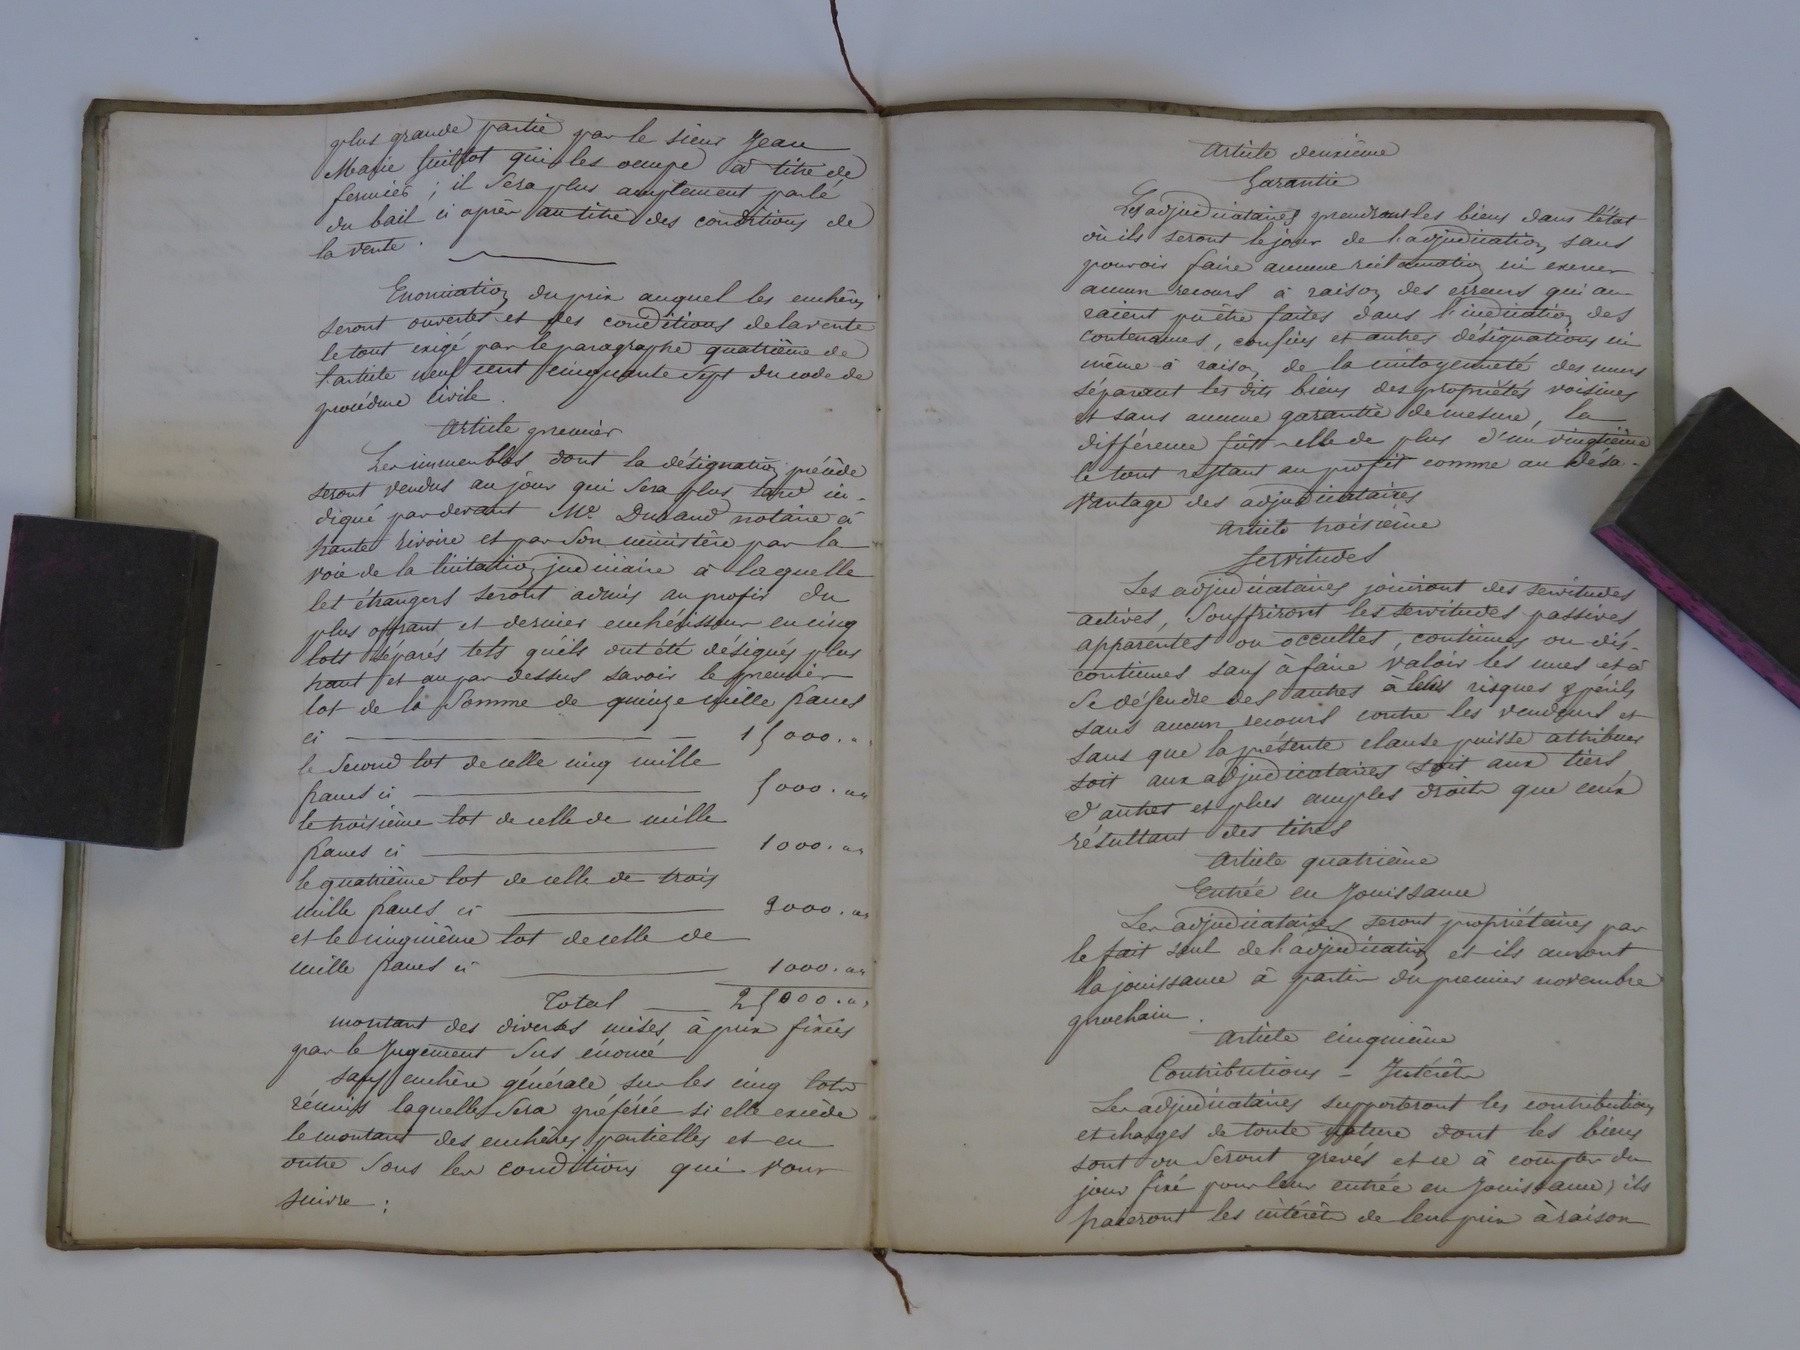 plus grande partie par le sieur Jean
Marie Guillot qui les occupe à titre de
fermier ; il sera plus amplement parlé
du bail ci après au titre des conditions de
la vente.
Enonciation du prix auquel les enchères
seront ouvertes et des conditions de la vente
le tout exigé par le paragraphe quatrième de
l'article neuf cent cinquante sept du code de
procédure civile.
Article premier
Les immeubles dont la désignation précède
seront vendus au jour qui sera plus tard in-
diqué par devant Me Durand notaire à
haute rivoire et par son ministère par la
voie de la licitation judiciaire à laquelle
les étrangers seront admis au profit du
plus offrant et dernier enchérisseur en cinq
lots séparés tels qu'ils ont été désignés plus
haut et au par dessus savoir le premier
lot de la somme de quinze mille francs
ci 15000. "
le second lot de celle cinq mille
francs ci 5000. ""
le troisième lot de celle de mille
francs ci 1000. ""
le quatrième lot de celle de trois
mille francs ci 3000. ""
et le cinquième lot de celle de
mille francs ci 1000. ""
Total 25000. ""
montant des diverses mises à prix fixées
par le Jugement sus énoncé
sauf enchère générale sur les cinq lots
réunis laquelle sera préférée si elle excède
le montant des enchères partielles et en
outre sous les conditions qui vont
suivre :
Article deuxième
Garantie
Les adjudicataires prendront les biens dans l'état
où ils seront le jour de l'adjudication, sans
pouvoir faire aucune réclamation ni exercer
aucun recours à raison des erreurs qui au-
raient pu être faites dans l'indication des
contenances, confins et autres désignations ni
même à raison de la mitoyenneté des murs
séparant les dits biens des propriétés voisines
et sans aucune garantie de mesure, la
différence fut-elle de plus d'un vingtième
le tout restant au profit comme au désa-
vantage des adjudicataires
Article troisième
Servitudes
Les adjudicataires jouiront des servitudes
actives, souffriront les servitudes passives
apparentes ou occultes, continues ou dis-
continues sauf à faire valoir les unes et à
se défendre des autres à leurs risques & périls
sans aucun recours contre les vendeurs et
sans que la présente clause puisse attribuer
soit aux adjudicataires soit aux tiers,
d'autres et plus amples droits que ceux
résultant des titres
Article quatrième
Entrée en Jouissance
Les adjudicataires seront propriétaires par
le fait seul de l'adjudication et ils auront
la jouissance à partir du premier novembre
prochain.
Article cinquième
Contributions - Intérêts
Les adjudicataires supporteront les contributions
et charges de toute nature dont les biens
sont ou seront grevés et ce à compter du
jour fixé pour leur entrée en Jouissance ; ils
paieront les intérêts de leur prix à raison